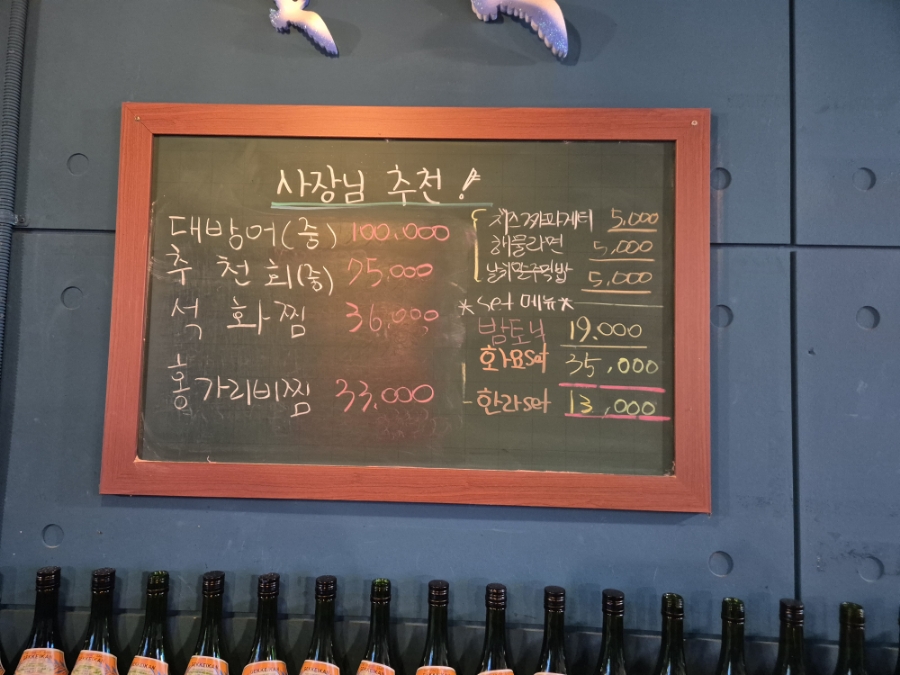 사장님 추천!
대방어(중) 100,000
추천회(중) 75,000
석화찜 36,000
홍가리비찜 33,000
치즈짜파게티 5,000
해물라면 5,000
날치알주먹밥 5,000
*set 메뉴*
밤토닉 19,000
화요set 35,000
한라set 13,000